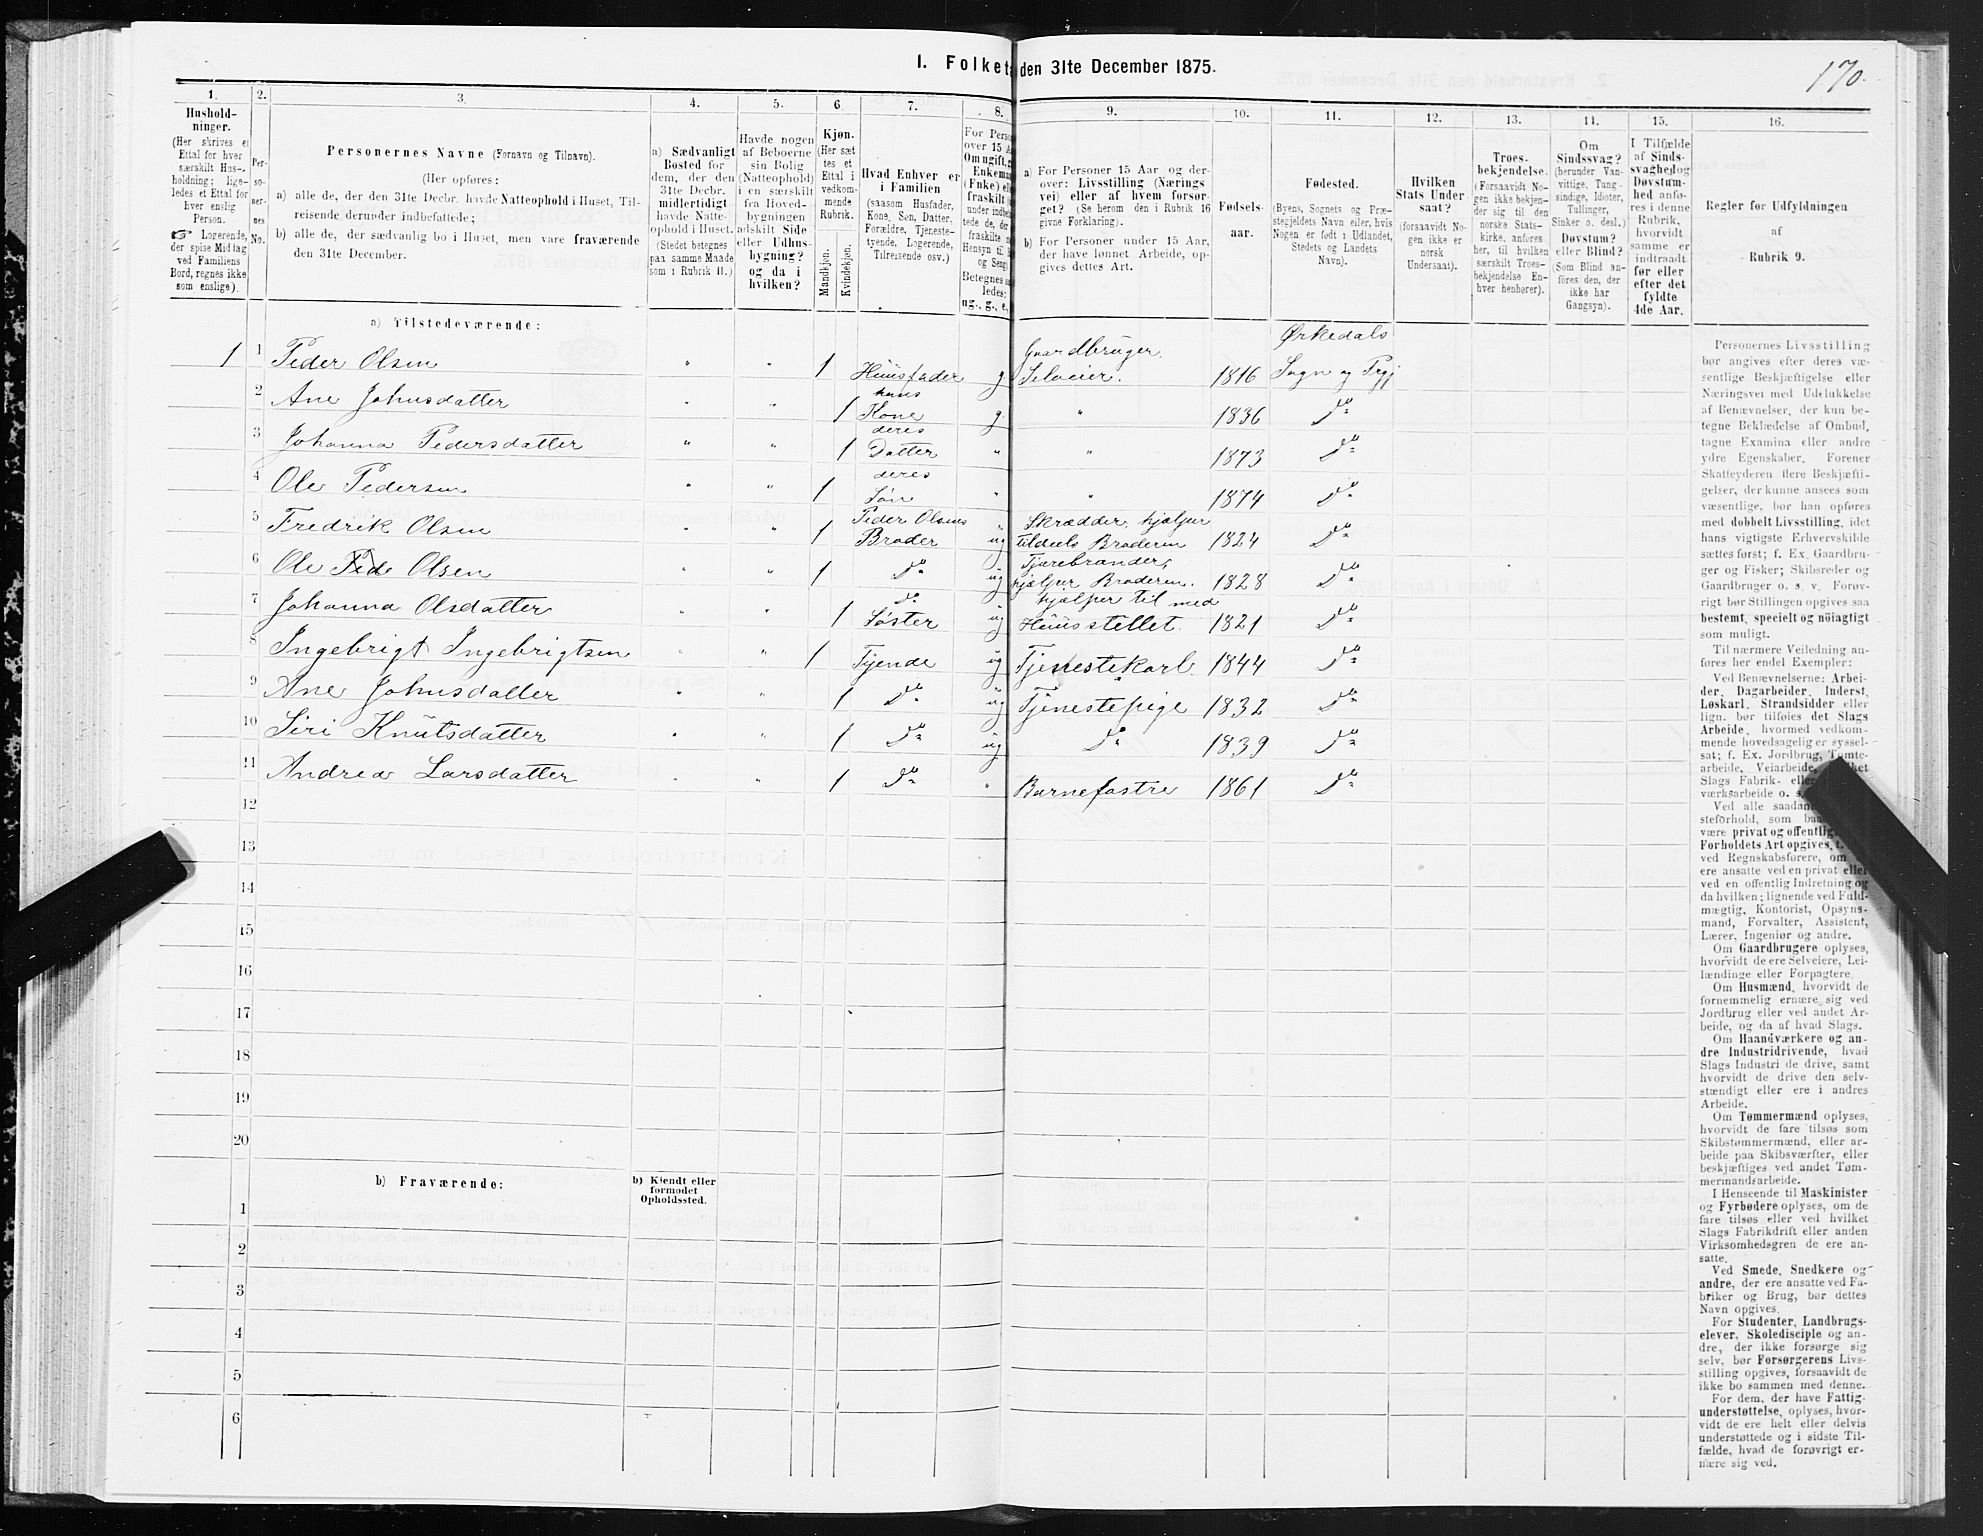 I. Folket den 31te December 1875.
170.
1. 2. 3. 4. 5. 6. 7. 8. 9. 10. 11. 12. 13. 14. 15. 16.
Hushold-
ninger.
(Her skrives et
Ettal for hver
særskilt Hus-
holdning; lige-
ledes et Ettal for
hver enslig
Person.
☞ Logerende,
der spise Middag
ved Familiens
Bord, regnes ikke
som enslige).
Per-
so-
ner-
nes
No.
Personernes Navne (Fornavn og Tilnavn).
(Her opføres:
a) alle de, der den 31te Decbr. havde Natteophold i Huset, Til-
reisende derunder indbefattede;
b) alle de, der sædvanlig bo i Huset, men vare fraværende
den 31te December.
a) Sædvanligt
Bosted for
dem, der den
31te Decbr.
midlertidigt
havde Natte-
ophold i Huset.
(Stedet betegnes
paa samme Maade
som i Rubrik 11.)
Havde nogen
af Beboerne
sin Bolig
(Natteophold)
i en særskilt
fra Hoved-
bygningen
adskilt Side
eller Udhus-
bygning?
og da i
hvilken?
Kjøn.
(Her sæt-
tes et
Ettal i
vedkom-
mende
Rubrik.
Mandkjøn.
Kvindekjøn.
Hvad Enhver er
i Familien
(saasom Husfader,
Kone, Søn, Datter,
Forældre, Tjeneste-
tyende, Logerende,
Tilreisende osv.)
For Perso
over 15 A
Om ugift,
Enkem
(Enke) e
fraskilt
Betegnes
ledes:
ug., g., e.,
a) For Personer 15 Aar og der-
over: Livsstilling (Nærings-
vei) eller af hvem forsør-
get? (Se herom den i Rubrik 16
givne Forklaring).
b) For Personer under 15 Aar,
der have lønnet Arbeide, op-
gives dettes Art.
Fødsels-
aar.
Fødested.
(Byens, Sognets og Præ-
stegjeldets Navn eller, hvis
Nogen er født i Udlandet,
Stedets og Landets
Navn).
Hvilken
Stats Under-
saat?
(forsaavidt No-
gen ikke er
norsk
Undersaat).
Troes-
bekjendelse.
(Forsaavidt No-
gen ikke bekjen-
der sig til den
norske Stats-
kirke, anføres
her, til hvilken
særskilt Troes-
bekjendelse En-
hver henhører).
Om
Sindssvag?
(herunder Van-
vittige, Tung-
sindige, Idioter,
Tullinger,
Sinker o. desl.)
Døvstum?
eller Blind?
(Som Blind an-
føres den, der
ikke har
Gangsyn).
I Tilfælde
af Sinds-
svaghed og
Døvstum-
hed anfø-
res i denne
Rubrik,
hvorvidt
samme er
indtraadt
før eller
efter det
fyldte
4de Aar.
Regler for Udfyldningen
af
Rubrik 9.
a) Tilstedeværende:
1 1 Peder Olsen " " 1 Huusfader g Gaardbruger, Selveier. 1816 Ørkedals Sogn og Prgj
2 Ane Johnsdatter " " 1 hans Kone g. " 1836 Do
3 Johanna Pedersdatter " " 1 deres Datter " " 1873 Do
4 Ole Pedersen " " 1 deres Søn " " 1874 Do
5 Fredrik Olsen " " 1 Peder Olsens Broder ug Skrædder, hjælper tildeels Broderen 1824 Do
6 Ole Olsen " " 1 Do ug Tjærebrænder, hjælper Broderen. 1828 Do
7 Johanna Olsdatter " " 1 Do Søster ug hjælper til med Huusstellet. 1821 Do
8 Ingebrigt Ingebrigtsen " " 1 Tyende ug Tjenestekarl. 1844 Do
9 Ane Johnsdatter " " 1 Do ug Tjenestepige 1832 Do
10 Siri Knutsdatter " " 1 Do ug Do 1839 Do
11 Andrea Larsdatter " " 1 Do " Barnefostre 1861 Do
12
13
14
15
16
17
18
19
20
b) Fraværende:
b) Kjendt eller
formodet
Opholdssted.
1
2
3
4
5
6
Personernes Livsstilling
bør angives efter deres væ-
sentlige Beskjæftigelse eller
Næringsvei med Udelukkelse
af Benævnelser, der kun be-
tegne Beklædelse af Ombud,
tagne Examina eller andre
ydre Egenskaber. Forener
Skatteyderen flere Beskjæfti-
gelser, der kunne ansees som
væsentlige, bør han opføres
med dobbelt Livsstilling, idet
hans vigtigste Erhvervskilde
sættes først; f. Ex. Gaardbru-
ger og Fisker; Skibsreder og
Gaardbruger o. s. v. Forøv-
rigt bør Stillingen opgives saa
bestemt, specielt og nöiagtigt
som muligt.
Til nærmere Veiledning an-
føres her endel Exempler:
Ved Benævnelserne: Arbei-
der, Dagarbeider, Inderst,
Løskarl, Strandsidder eller
lign. bør tilføies det Slags
Arbeide, hvormed vedkom-
mende hovedsagelig er syssel-
sat; f. Ex. Jordbrug, Tomte-
arbeide, Veiarbeide,
Slags Fabrik- eller
værksarbeide o. s.
Ved alle saadan
steforhold, som
være privat og offentlig,
Forholdets Art opgives,
ved Regnskabsførere, om
ere ansatte ved en privat eller
ved en offentlig Indretning og
da hvilken; lignende ved Fuld-
mægtig, Kontorist, Opsyns-
mand, Forvalter, Assistent,
Lærer, Ingeniør og andre.
Om Gaardbrugere oplyses,
hvorvidt de ere Selveiere, Lei-
lændinge eller Forpagtere.
Om Husmænd, hvorvidt de
fornemmelig ernære sig ved
Jordbrug eller ved andet Ar-
beide, og da af hvad Slags.
Om Haandværkere og an-
dre Industridrivende, hvad
Slags Industri de drive, samt
hvorvidt de drive den selv-
stændigt eller ere i andres
Arbeide.
Om Tømmermænd oplyses,
hvorvidt de fare tilsøs som
Skibstømmermænd, eller ar-
beide paa Skibsværfter, eller
beskjæftiges ved andet Tøm-
mermandsarbeide.
I Henseende til Maskinister
og Fyrbødere oplyses, om de
fare tilsøs eller ved hvilket
Slags Fabrikdrift eller anden
Virksomhedsgren de ere an-
satte.
Ved Smede, Snedkere og
andre, der ere ansatte ved Fa-
briker og Brug, bør dettes
Navn opgives.
For Studenter, Landbrugs-
elever, Skoledisciple og an-
dre, der ikke forsørge sig
selv, bør Forsørgerens Livs-
stilling opgives, forsaavidt de
ikke bo sammen med denne.
For dem, der have Fattig-
understøttelse, oplyses, hvor-
vidt de ere helt eller delvis
understøttede og i sidste Til-
fælde, hvad de forøvrigt er-
nære sig ved.